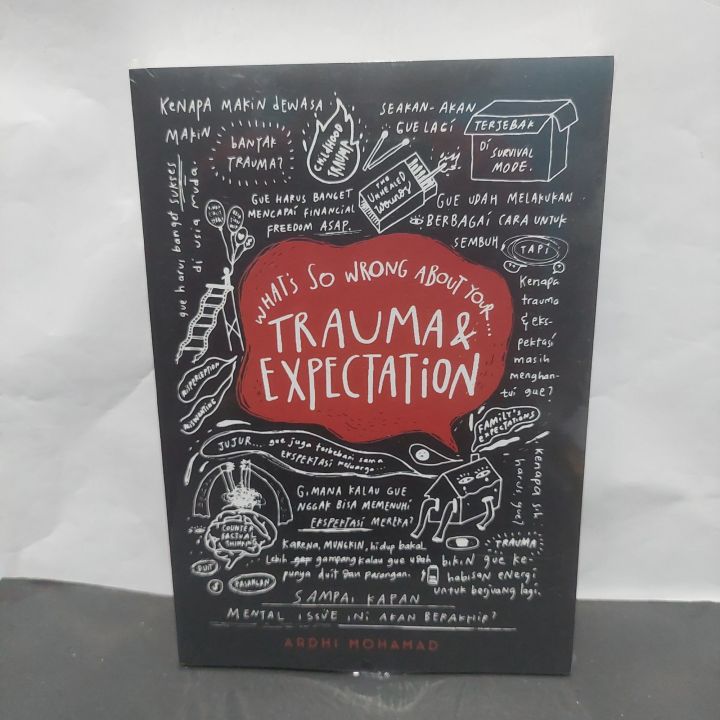 KENAPA MAKIN DEWASA
MAKIN
BANYAK
TRAUMA?
CHILDHOOD
TRAUMA
SEAKAN-AKAN
GUE LAGI
TERJEBAK
DI SURVIVAL
MODE.
gue harus banget sukses
di usia muda
GUE HARUS BANGET
MENCAPAI FINANCIAL
FREEDOM ASAP.
THE
UNHEALED
WOUNDS
GUE UDAH MELAKUKAN
BERBAGAI CARA UNTUK
SEMBUH,
TAPI
Kenapa
trauma
& eks-
pektasi
masih
menghan-
tui gue?
WHAT'S SO WRONG ABOUT YOUR...
TRAUMA &
EXPECTATION
MISPERCEPTION
MISWANTING
FAMILY'S
EXPECTATIONS
JUJUR... gue juga terbebani sama
EKSPEKTASI keluarga...
GIMANA KALAU GUE
NGGAK BISA MEMENUHI
EKSPEKTASI MEREKA?
Kenapa sih
harus gue?
COUNTER
FACTUAL
THINKING
DUIT
PASANGAN
KARENA, MUNGKIN, hidup bakal
lebih gap gampang kalau gue udah
punya duit dan pasangan.
TRAUMA
bikin gue ke-
habisan energi
untuk berjuang lagi.
SAMPAI KAPAN
MENTAL ISSUE INI AKAN BERAKHIR?
ARDHI MOHAMAD